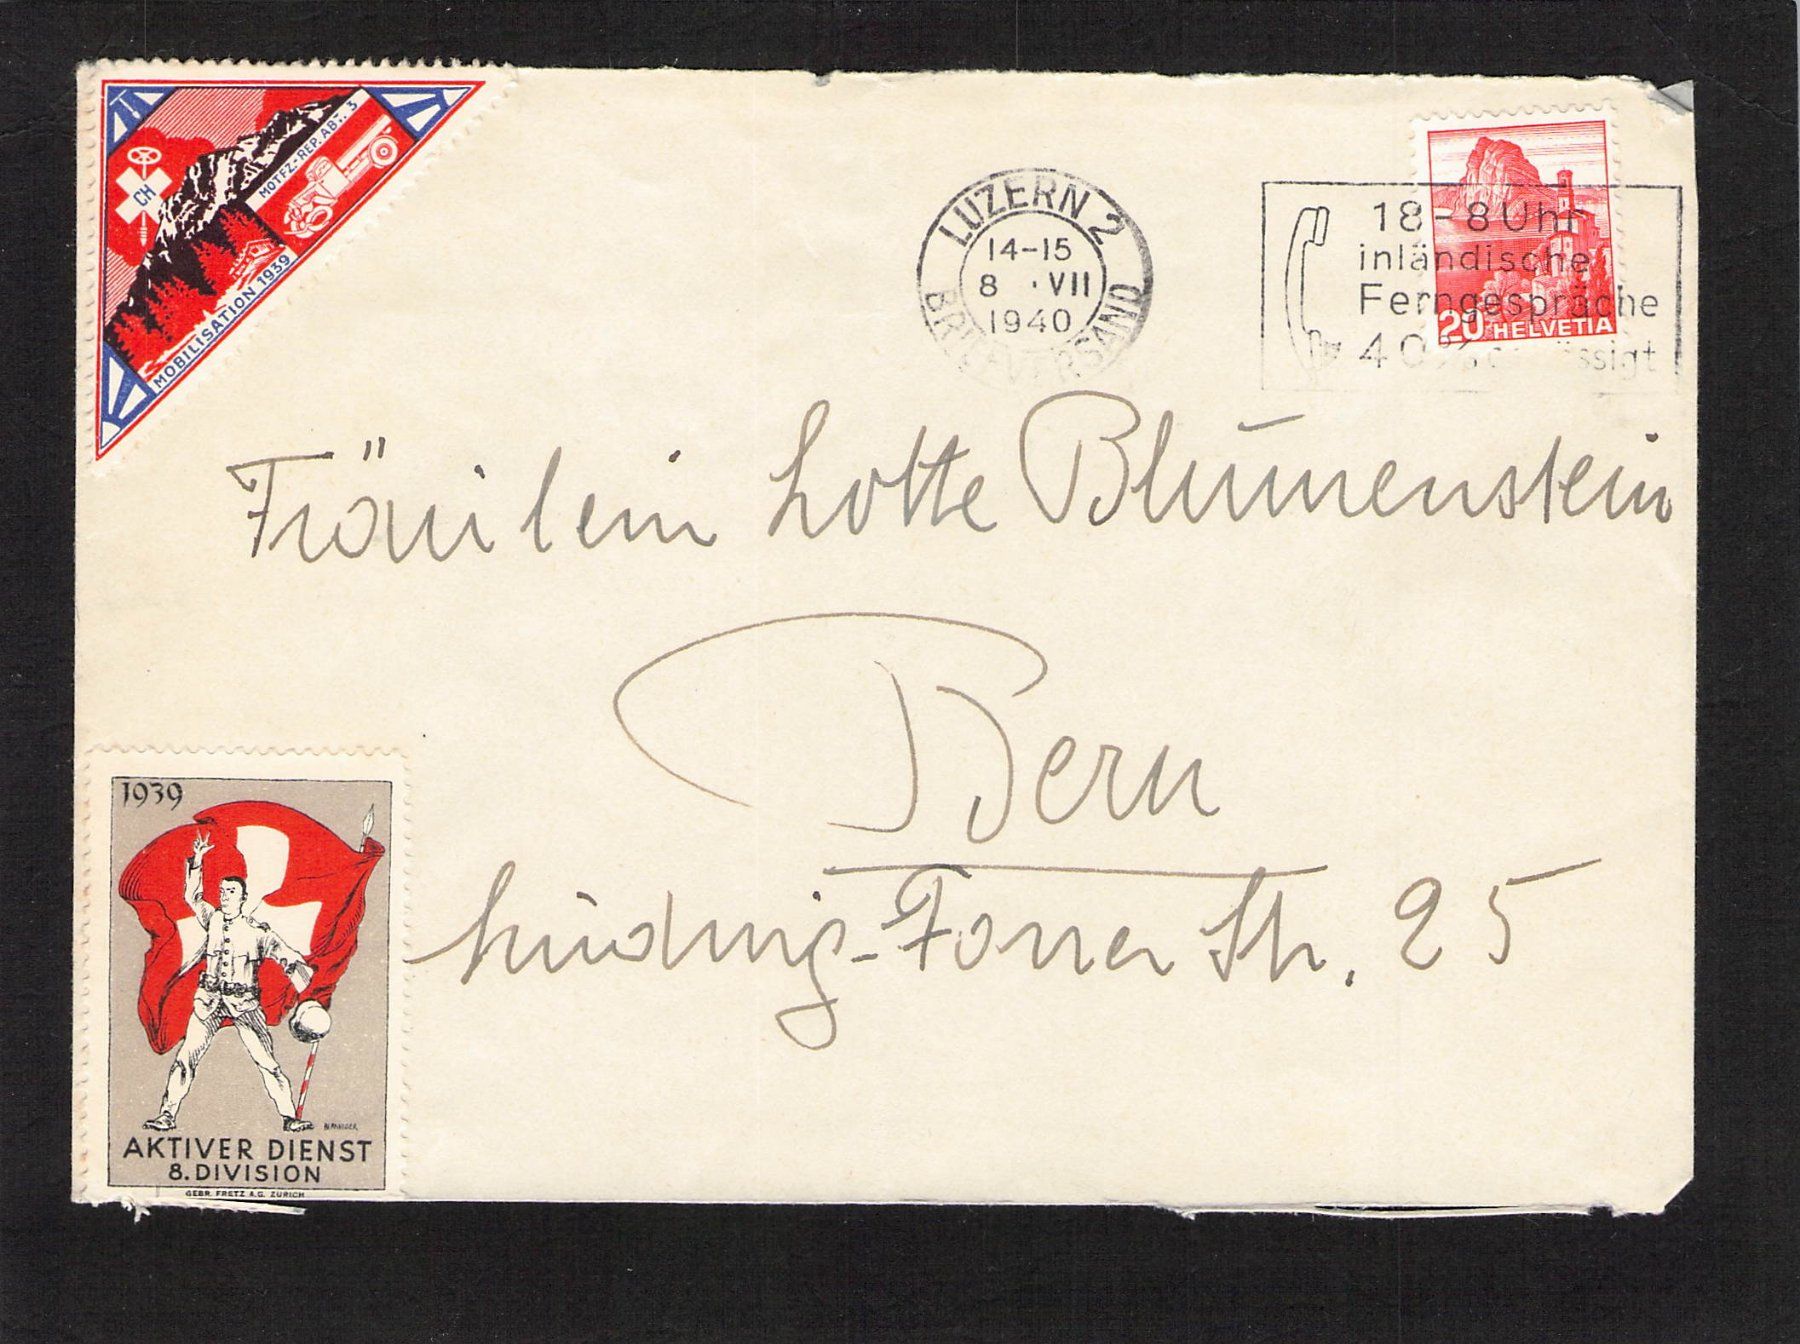 CH
MOTFZ.-REP. ABT. 3
MOBILISATION 1939
LUZERN 2
14-15
8 · VII
1940
BRIEFVERSAND
18-8 Uhr
inländische
Ferngespräche
40%
20 HELVETIA
Fräulein Lotte Blumenstein
Bern
Ludwig-Forrer Str. 25
1939
AKTIVER DIENST
8. DIVISION
GEBR. FRETZ A.G. ZÜRICH